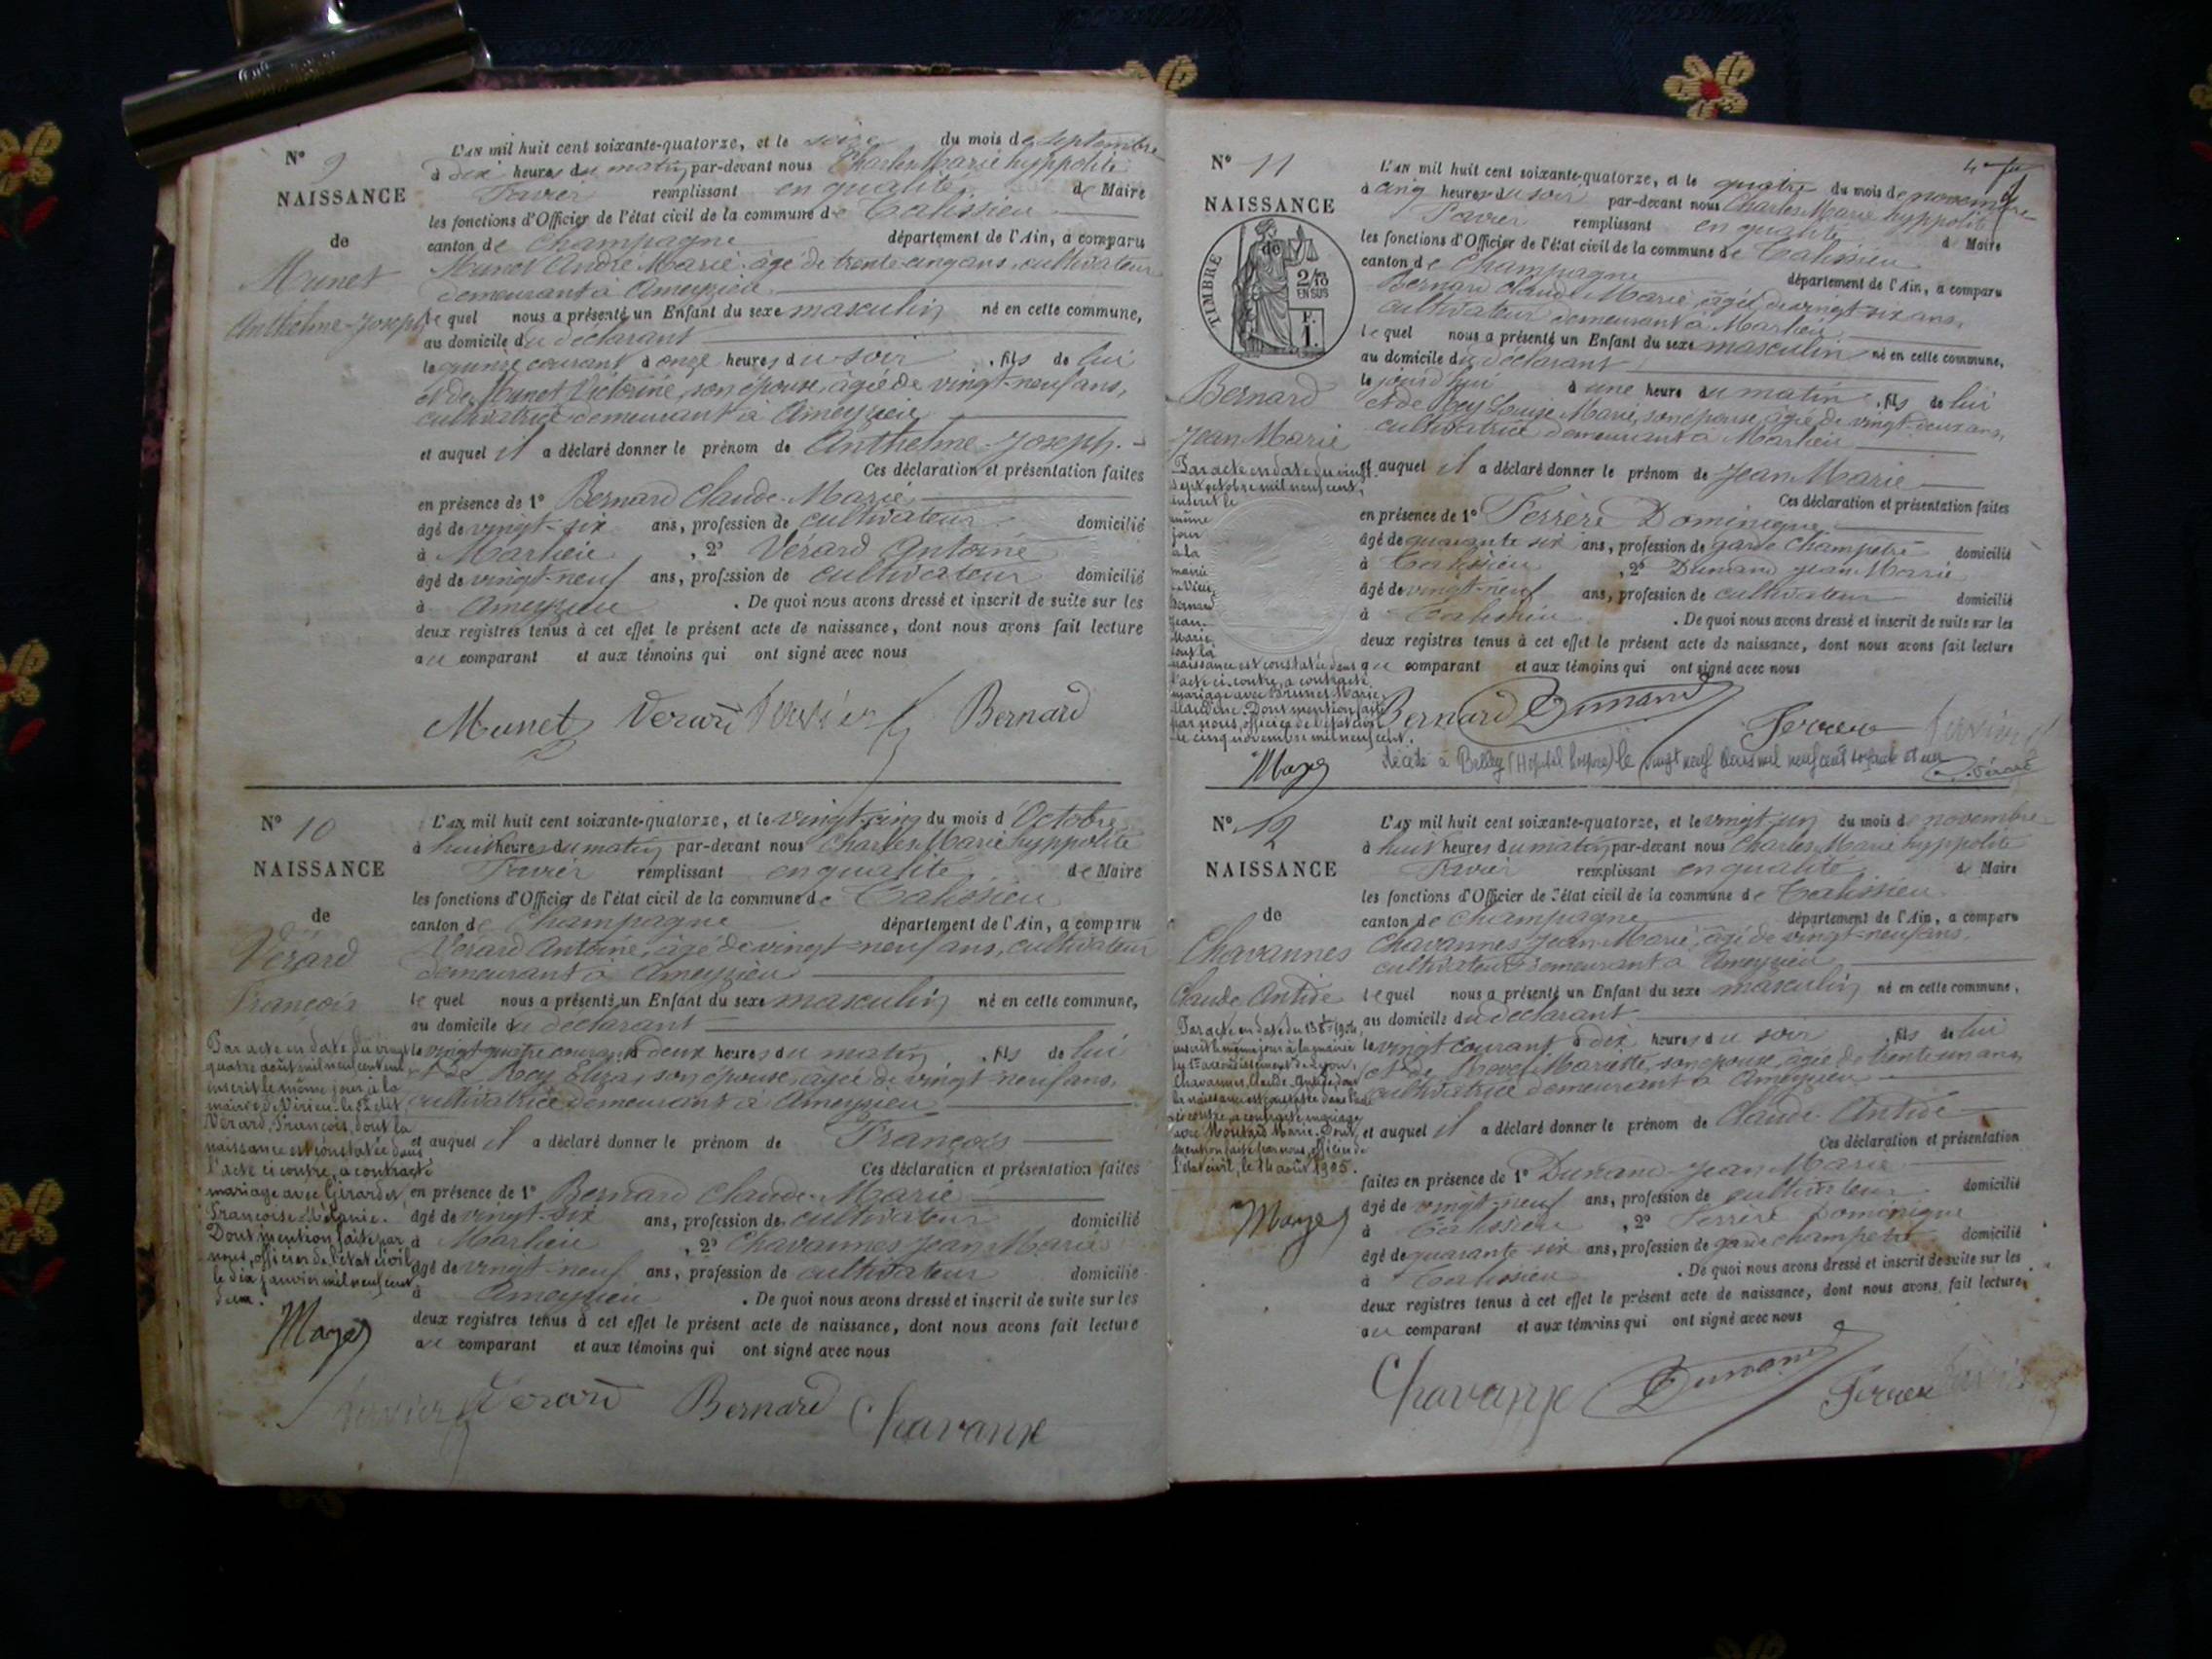 N° 9
NAISSANCE
de
Munet
Anthelme-Joseph
L'AN mil huit cent soixante-quatorze, et le seize du mois de Septembre
à dix heures du matin par-devant nous Charles Marie hyppolite
remplissant en qualité de Maire
les fonctions d'Officier de l'état civil de la commune de Talissieu
canton de Champagne département de l'Ain, a comparu
Munet André Marie, âgé de trente-cinq ans, cultivateur
demeurant à Ameyzieu
lequel nous a présenté un Enfant du sexe masculin né en cette commune,
au domicile du déclarant
le quinze courant à onze heures du soir, fils de lui
et de Munet Victorine, son épouse, âgée de vingt-neuf ans,
cultivatrice demeurant à Ameyzieu
et auquel il a déclaré donner le prénom de Anthelme-Joseph.
Ces déclaration et présentation faites
en présence de 1° Bernard Claude-Marie
âgé de vingt-six ans, profession de cultivateur domicilié
à Marlieu, 2° Vérard Antoine
âgé de vingt-neuf ans, profession de cultivateur domicilié
à Ameyzieu. De quoi nous avons dressé et inscrit de suite sur les
deux registres tenus à cet effet le présent acte de naissance, dont nous avons fait lecture
au comparant et aux témoins qui ont signé avec nous
Munet Verard Bernard
N° 10
NAISSANCE
de
Vérard
François
L'AN mil huit cent soixante-quatorze, et le vingt-cinq du mois d'Octobre
à huit heures du matin par-devant nous Charles Marie hyppolite
remplissant en qualité de Maire
les fonctions d'Officier de l'état civil de la commune de Talissieu
canton de Champagne département de l'Ain, a comparu
Verard Antoine, âgé de vingt-neuf ans, cultivateur
demeurant à Ameyzieu
lequel nous a présenté un Enfant du sexe masculin né en cette commune,
au domicile du déclarant
le vingt-quatre courant à deux heures du matin, fils de lui
et de Rey Eliza, son épouse, âgée de vingt-neuf ans,
cultivatrice demeurant à Ameyzieu
et auquel il a déclaré donner le prénom de François
Ces déclaration et présentation faites
en présence de 1° Bernard Claude-Marie
âgé de vingt-six ans, profession de cultivateur domicilié
à Marlieu, 2° Chavannes Jean Marie
âgé de vingt-neuf ans, profession de cultivateur domicilié
à Ameyzieu. De quoi nous avons dressé et inscrit de suite sur les
deux registres tenus à cet effet le présent acte de naissance, dont nous avons fait lecture
au comparant et aux témoins qui ont signé avec nous
Par acte en date du vingt
quatre août mil neuf cent un
inscrit le même jour à la
mairie de Virieu-le-Petit
Vérard, François, dont la
naissance est constatée dans
l'acte ci contre, a contracté
mariage avec Girardet
Françoise Mélanie.
Dont mention faite par
nous, officier de l'état civil
le dix janvier mil neuf cent
deux.
Verard Bernard Chavanne
N° 11
NAISSANCE
de
TIMBRE
2/10
EN SUS
F.
1.
Bernard
Jean Marie
L'AN mil huit cent soixante-quatorze, et le quatre du mois de novembre
à cinq heures du soir par-devant nous Charles Marie hyppolite
remplissant en qualité de Maire
les fonctions d'Officier de l'état civil de la commune de Talissieu
canton de Champagne département de l'Ain, a comparu
Bernard Claude Marie, âgé de vingt-six ans,
cultivateur demeurant à Marlieu
lequel nous a présenté un Enfant du sexe masculin né en cette commune,
au domicile du déclarant
le jourd'hui à une heure du matin, fils de lui
et de Rey Louise Marie, son épouse, âgée de vingt-deux ans,
cultivatrice demeurant à Marlieu
et auquel il a déclaré donner le prénom de Jean Marie
Ces déclaration et présentation faites
en présence de 1° Ferrère Dominique
âgé de quarante six ans, profession de garde champêtre domicilié
à Talissieu, 2° Dunand Jean Marie
âgé de vingt-neuf ans, profession de cultivateur domicilié
à Talissieu. De quoi nous avons dressé et inscrit de suite sur les
deux registres tenus à cet effet le présent acte de naissance, dont nous avons fait lecture
au comparant et aux témoins qui ont signé avec nous
Par acte en date du vingt
sept octobre mil neuf cent,
inscrit le
même
jour
à la
mairie
de Vieu,
Bernard
Jean-
Marie
dont la
naissance est constatée dans
l'acte ci-contre, a contracté
mariage avec Brunet Marie
Claudine. Dont mention faite
par nous, officier de l'état civil
le cinq novembre mil neuf cent.
Bernard Dunand Ferrere
décédé à Belley (Hôpital hospice) le vingt neuf mars mil neuf cent soixante et un
N° 12
NAISSANCE
de
Chavannes
Claude Antide
L'AN mil huit cent soixante-quatorze, et le vingt-un du mois de novembre
à huit heures du matin par-devant nous Charles Marie hyppolite
remplissant en qualité de Maire
les fonctions d'Officier de l'état civil de la commune de Talissieu
canton de Champagne département de l'Ain, a comparu
Chavannes Jean Marie, âgé de vingt-neuf ans,
cultivateur demeurant à Ameyzieu
lequel nous a présenté un Enfant du sexe masculin né en cette commune,
au domicile du déclarant
le vingt courant à dix heures du soir, fils de lui
et de Mariette, son épouse, âgée de trente un ans,
cultivatrice demeurant à Ameyzieu
et auquel il a déclaré donner le prénom de Claude Antide
Ces déclaration et présentation
faites en présence de 1° Dunand Jean Marie
âgé de vingt-neuf ans, profession de cultivateur domicilié
à Talissieu, 2° Ferrère Dominique
âgé de quarante-six ans, profession de garde champêtre domicilié
à Talissieu. De quoi nous avons dressé et inscrit de suite sur les
deux registres tenus à cet effet le présent acte de naissance, dont nous avons fait lecture
au comparant et aux témoins qui ont signé avec nous
Par acte en date du
inscrit le même jour à la mairie
du arrondissement de Lyon,
Chavannes, Claude-Antide, dont
la naissance est constatée dans l'acte
ci-contre, a contracté mariage
avec Marie. Dont
mention faite par nous, officier de
l'état civil, le 14 août 1905.
Chavanne Dunand Ferrere